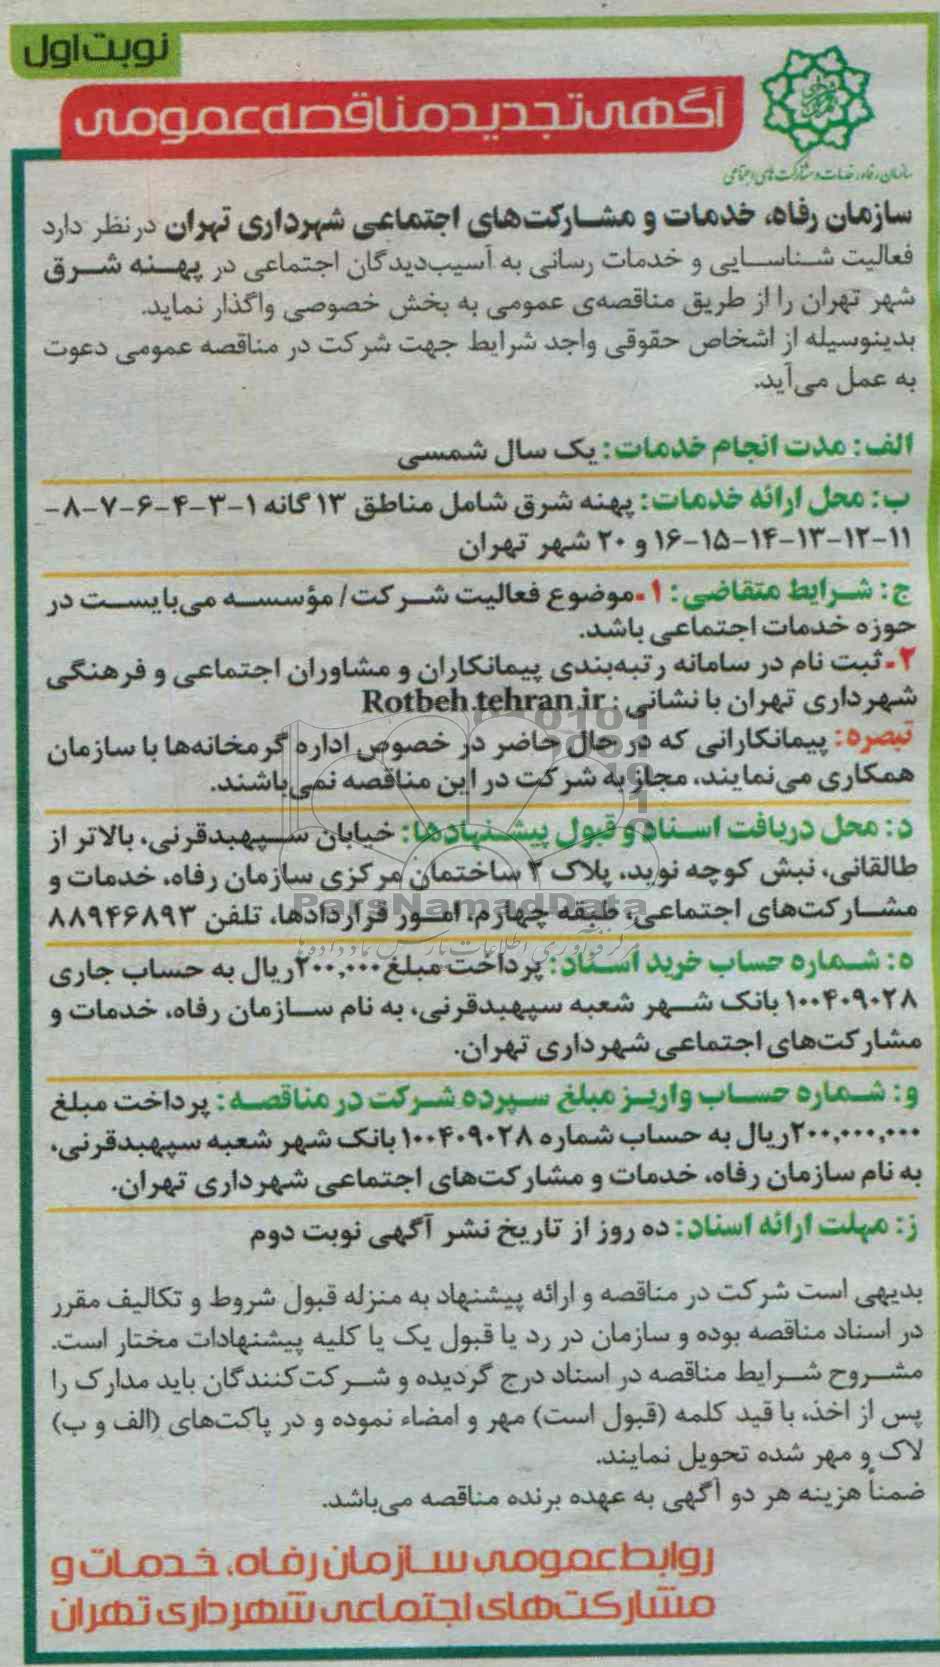 نوبت اول
آگهی تجدید مناقصه عمومی
سازمان رفاه، خدمات و مشارکت های اجتماعی
سازمان رفاه، خدمات و مشارکت‌های اجتماعی شهرداری تهران در نظر دارد
فعالیت شناسایی و خدمات رسانی به آسیب‌دیدگان اجتماعی در پهنه شرق
شهر تهران را از طریق مناقصه‌ی عمومی به بخش خصوصی واگذار نماید.
بدینوسیله از اشخاص حقوقی واجد شرایط جهت شرکت در مناقصه عمومی دعوت
به عمل می‌آید.
الف: مدت انجام خدمات: یک سال شمسی
ب: محل ارائه خدمات: پهنه شرق شامل مناطق ۱۳ گانه ۱-۳-۴-۶-۷-۸-
۱۱-۱۲-۱۳-۱۴-۱۵-۱۶ و ۲۰ شهر تهران
ج: شرایط متقاضی: ۱.موضوع فعالیت شرکت/ مؤسسه می‌بایست در
حوزه خدمات اجتماعی باشد.
۲. ثبت نام در سامانه رتبه‌بندی پیمانکاران و مشاوران اجتماعی و فرهنگی
شهرداری تهران با نشانی: Rotbeh.tehran.ir
تبصره: پیمانکارانی که در حال حاضر در خصوص اداره گرمخانه‌ها با سازمان
همکاری می‌نمایند، مجاز به شرکت در این مناقصه نمی‌باشند.
د: محل دریافت اسناد و قبول پیشنهادها: خیابان سپهبدقرنی، بالاتر از
طالقانی، نبش کوچه نوید، پلاک ۲ ساختمان مرکزی سازمان رفاه، خدمات و
مشارکت‌های اجتماعی، طبقه چهارم، امور قراردادها، تلفن ۸۸۹۴۶۸۹۳
ParsNamadData
مرکز فرآوری اطلاعات پارس نماد داده ها
ه: شماره حساب خرید اسناد: پرداخت مبلغ ۲۰۰,۰۰۰ریال به حساب جاری
۱۰۰۴۰۹۰۲۸ بانک شهر شعبه سپهبدقرنی، به نام سازمان رفاه، خدمات و
مشارکت‌های اجتماعی شهرداری تهران.
و: شماره حساب واریز مبلغ سپرده شرکت در مناقصه: پرداخت مبلغ
۲۰۰,۰۰۰,۰۰۰ریال به حساب شماره ۱۰۰۴۰۹۰۲۸ بانک شهر شعبه سپهبدقرنی،
به نام سازمان رفاه، خدمات و مشارکت‌های اجتماعی شهرداری تهران.
ز: مهلت ارائه اسناد: ده روز از تاریخ نشر آگهی نوبت دوم
بدیهی است شرکت در مناقصه و ارائه پیشنهاد به منزله قبول شروط و تکالیف مقرر
در اسناد مناقصه بوده و سازمان در رد یا قبول یک یا کلیه پیشنهادات مختار است.
مشروح شرایط مناقصه در اسناد درج گردیده و شرکت‌کنندگان باید مدارک را
پس از اخذ، با قید کلمه (قبول است) مهر و امضاء نموده و در پاکت‌های (الف و ب)
لاک و مهر شده تحویل نمایند.
ضمناً هزینه هر دو آگهی به عهده برنده مناقصه می‌باشد.
روابط عمومی سازمان رفاه، خدمات و
مشارکت‌های اجتماعی شهرداری تهران